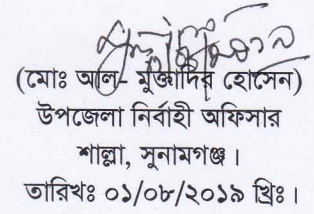 (মোঃ আল- মুক্তাদির হোসেন)
উপজেলা নির্বাহী অফিসার
শাল্লা, সুনামগঞ্জ।
তারিখঃ ০১/০৮/২০১৯ খ্রিঃ।